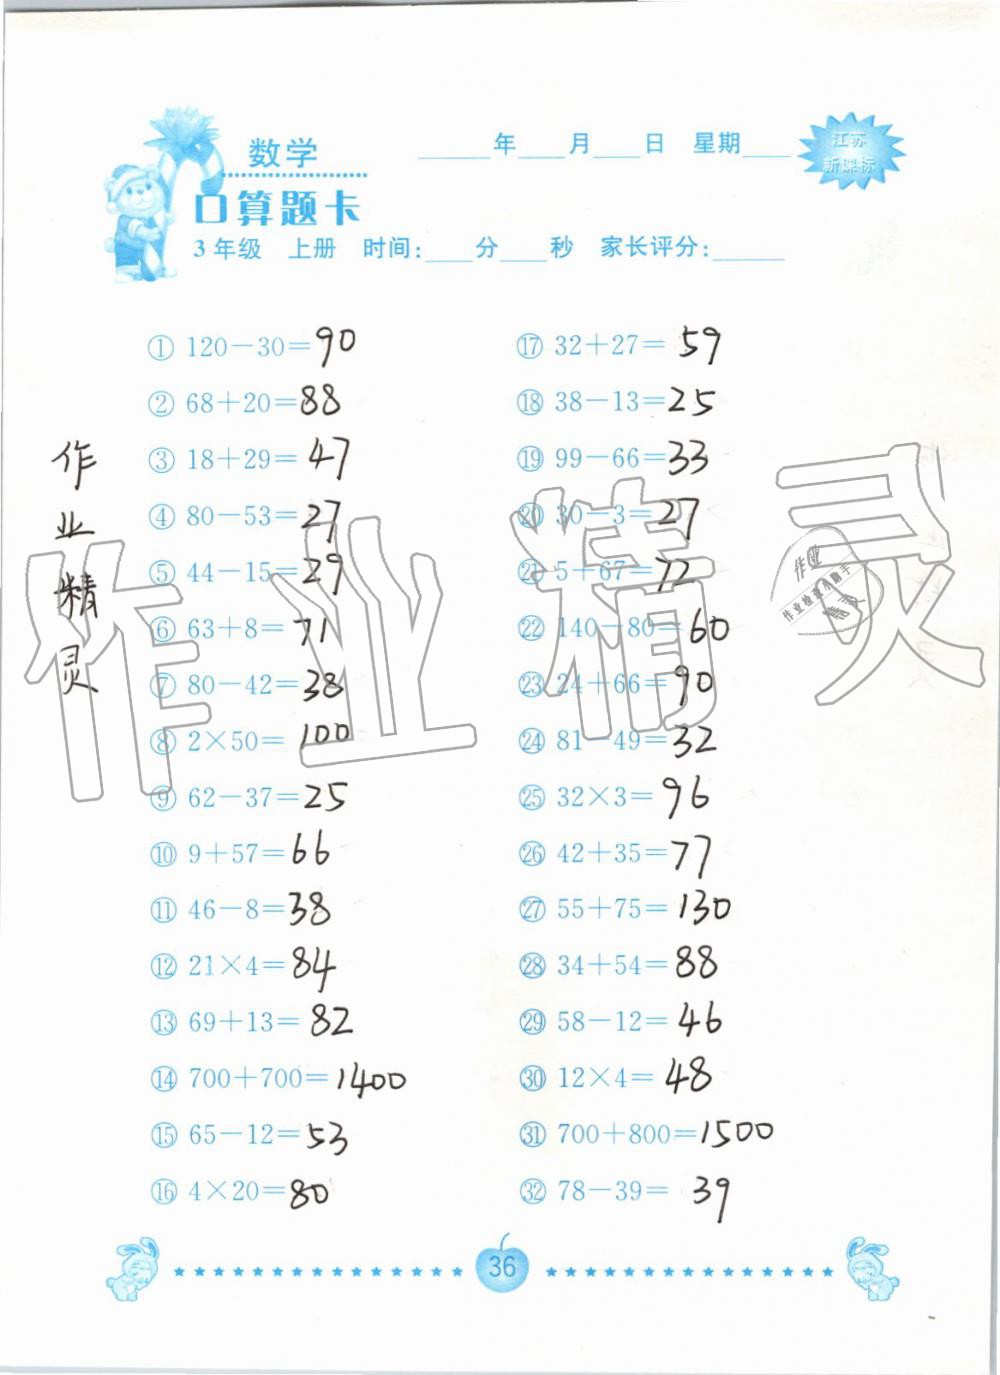 数学
____年____月____日 星期____
江苏
新课标
口算题卡
3年级 上册 时间:____分____秒 家长评分:____
① 120－30＝90
② 68＋20＝88
③ 18＋29＝47
④ 80－53＝27
⑤ 44－15＝29
⑥ 63＋8＝71
⑦ 80－42＝38
⑧ 2×50＝100
⑨ 62－37＝25
⑩ 9＋57＝66
⑪ 46－8＝38
⑫ 21×4＝84
⑬ 69＋13＝82
⑭ 700＋700＝1400
⑮ 65－12＝53
⑯ 4×20＝80
⑰ 32＋27＝59
⑱ 38－13＝25
⑲ 99－66＝33
⑳ 30－3＝27
㉑ 5＋67＝72
㉒ 140－80＝60
㉓ 24＋66＝90
㉔ 81－49＝32
㉕ 32×3＝96
㉖ 42＋35＝77
㉗ 55＋75＝130
㉘ 34＋54＝88
㉙ 58－12＝46
㉚ 12×4＝48
㉛ 700＋800＝1500
㉜ 78－39＝39
作业精灵
作业精灵
作业
作业检查小助手
精灵
36